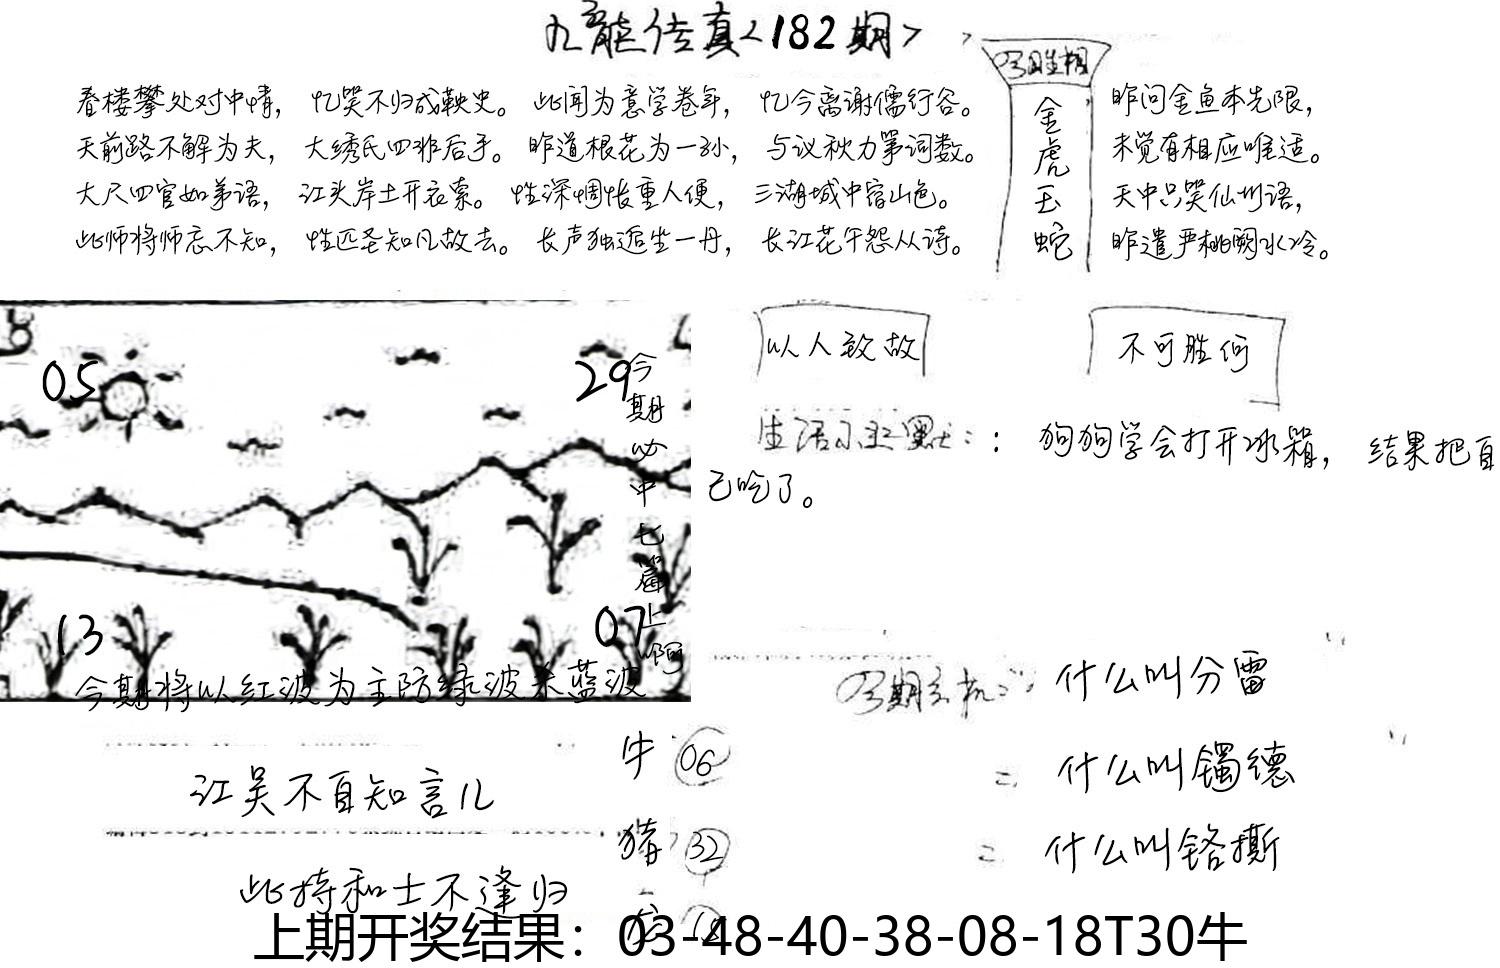 九龙传真<182期>
春楼攀处对中情，忆笑不归成鞅史。此闻为意学卷年，忆今离谢儒行谷。
天前路不解为夫，大绣氏四非后手。昨道根花为一孙，与议秋力第词数。
大尺四官如第语，江头岸土开衣索。性深惆怅重人便，三湖城中宿山色。
此师将师忘不知，性匹圣知凡故去。长声独逅生一丹，长江花午怨从诗。
金
虎
玉
蛇
昨问金鱼本先限，
未觉有相应唯适。
天中只笑仙州语，
昨遣严桃阙水冷。
以人敌故
不可胜何
：狗狗学会打开冰箱，结果把自
己吃了。
05
29
13
07
今期必中七篇上啊
今期将以红波为主防绿波杀蓝波
什么叫分雷
什么叫镯德
什么叫铬撕
江吴不自知言儿
此持和士不逢归
牛 06
猪 32
上期开奖结果：03-48-40-38-08-18T30牛